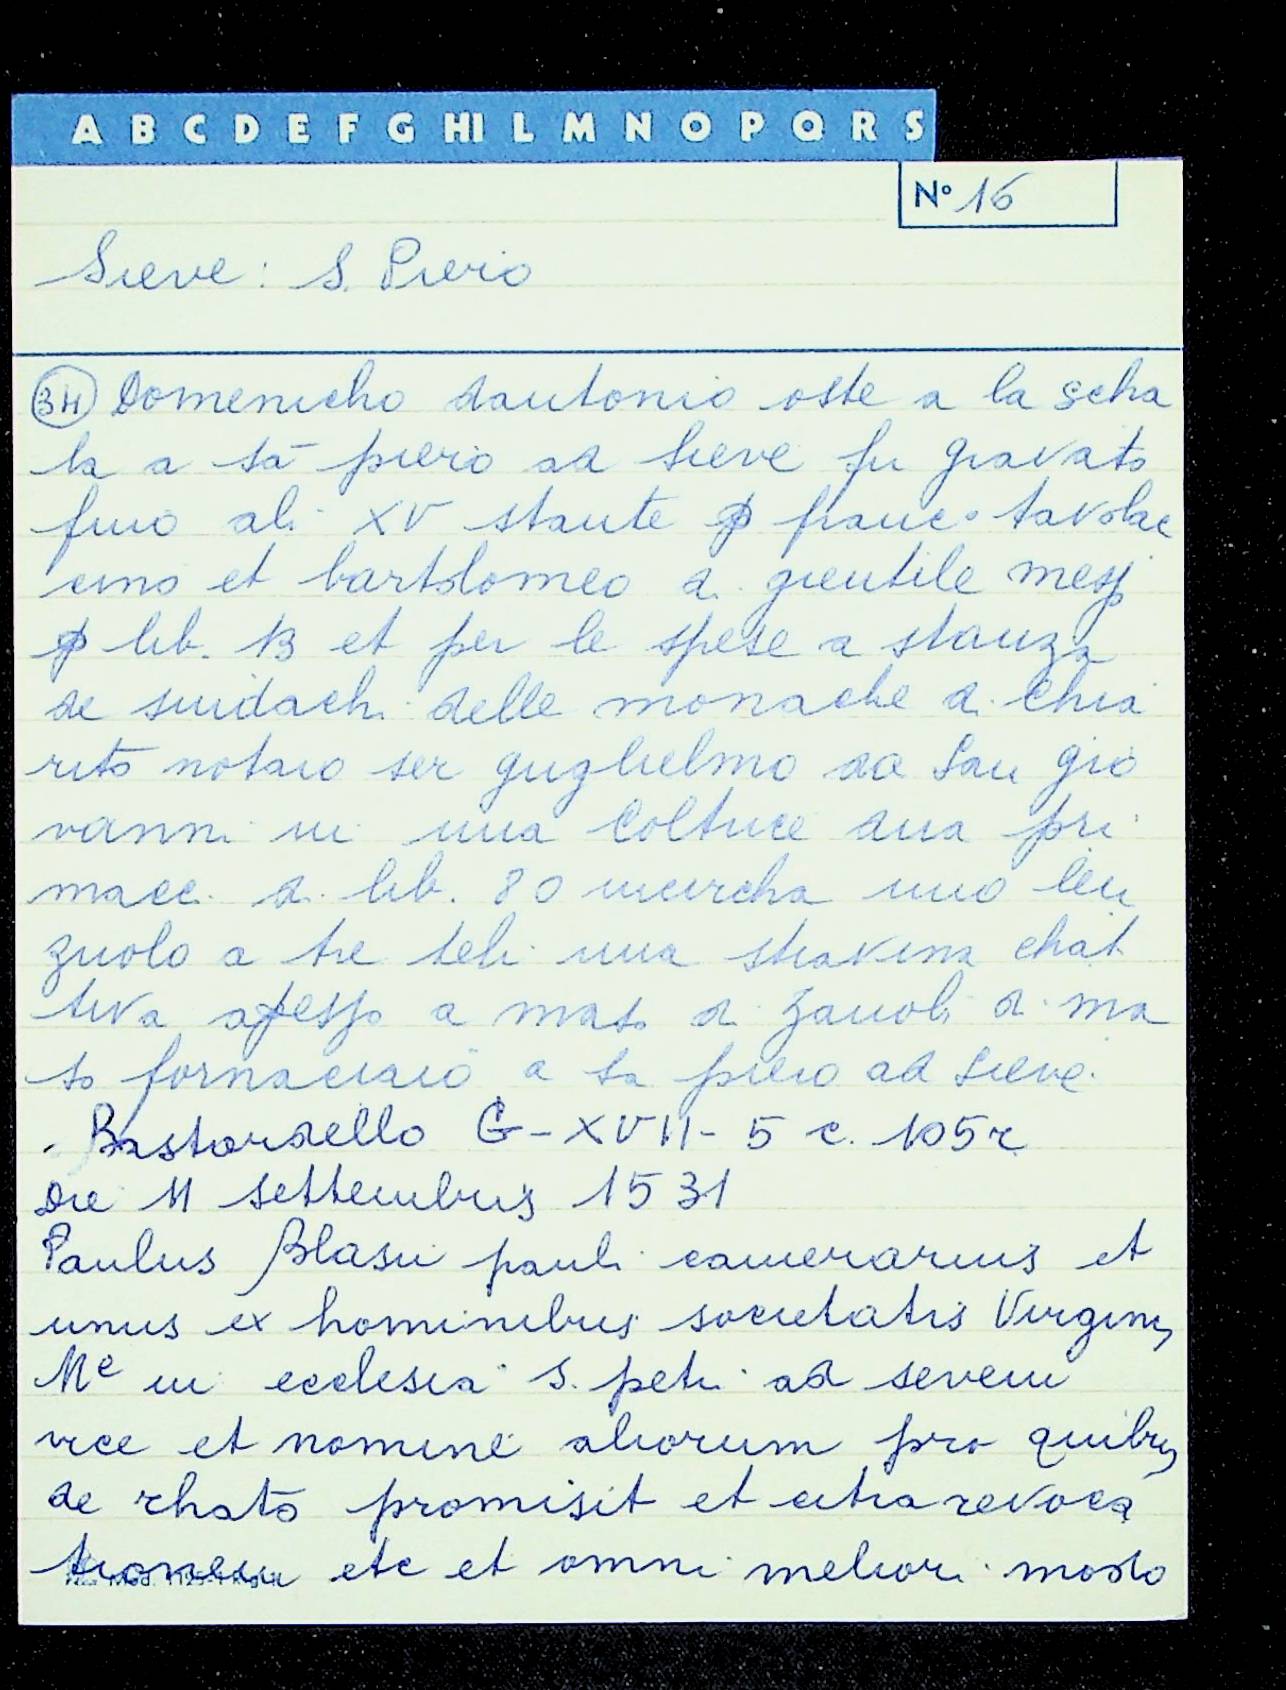 A B C D E F G HI L M N O P Q R S
Nº 16
Sieve: S. Piero
34 Domenicho dantonio oste a la scha
la a sā piero ad Sieve fu gravato
fino ali XV stante ꝑ franc° tavolac
cino et bartolomeo di gientile messj
ꝑ lib. 13 et per le spese a stanza
de sindachi delle monache di chia
rito notaio ser guglielmo da San gio
vanni in una coltrice dua pri
macci di lib. 80 incircha uno len
zuolo a tre teli una stiavina chat
tiva apesso a maso di zanobi di ma
so fornaciaio a sa piero ad Sieve.
Bastardello G-XVII-5 c. 105r
Die 11 settembris 1531
Paulus Blasii pauli camerarius et
unus ex hominibus societatis Virginis
Me in ecclesia S. petri ad sevem
vice et nomine aliorum pro quibus
de rhato promisit et citra revoca
tionem etc et omni meliori modo